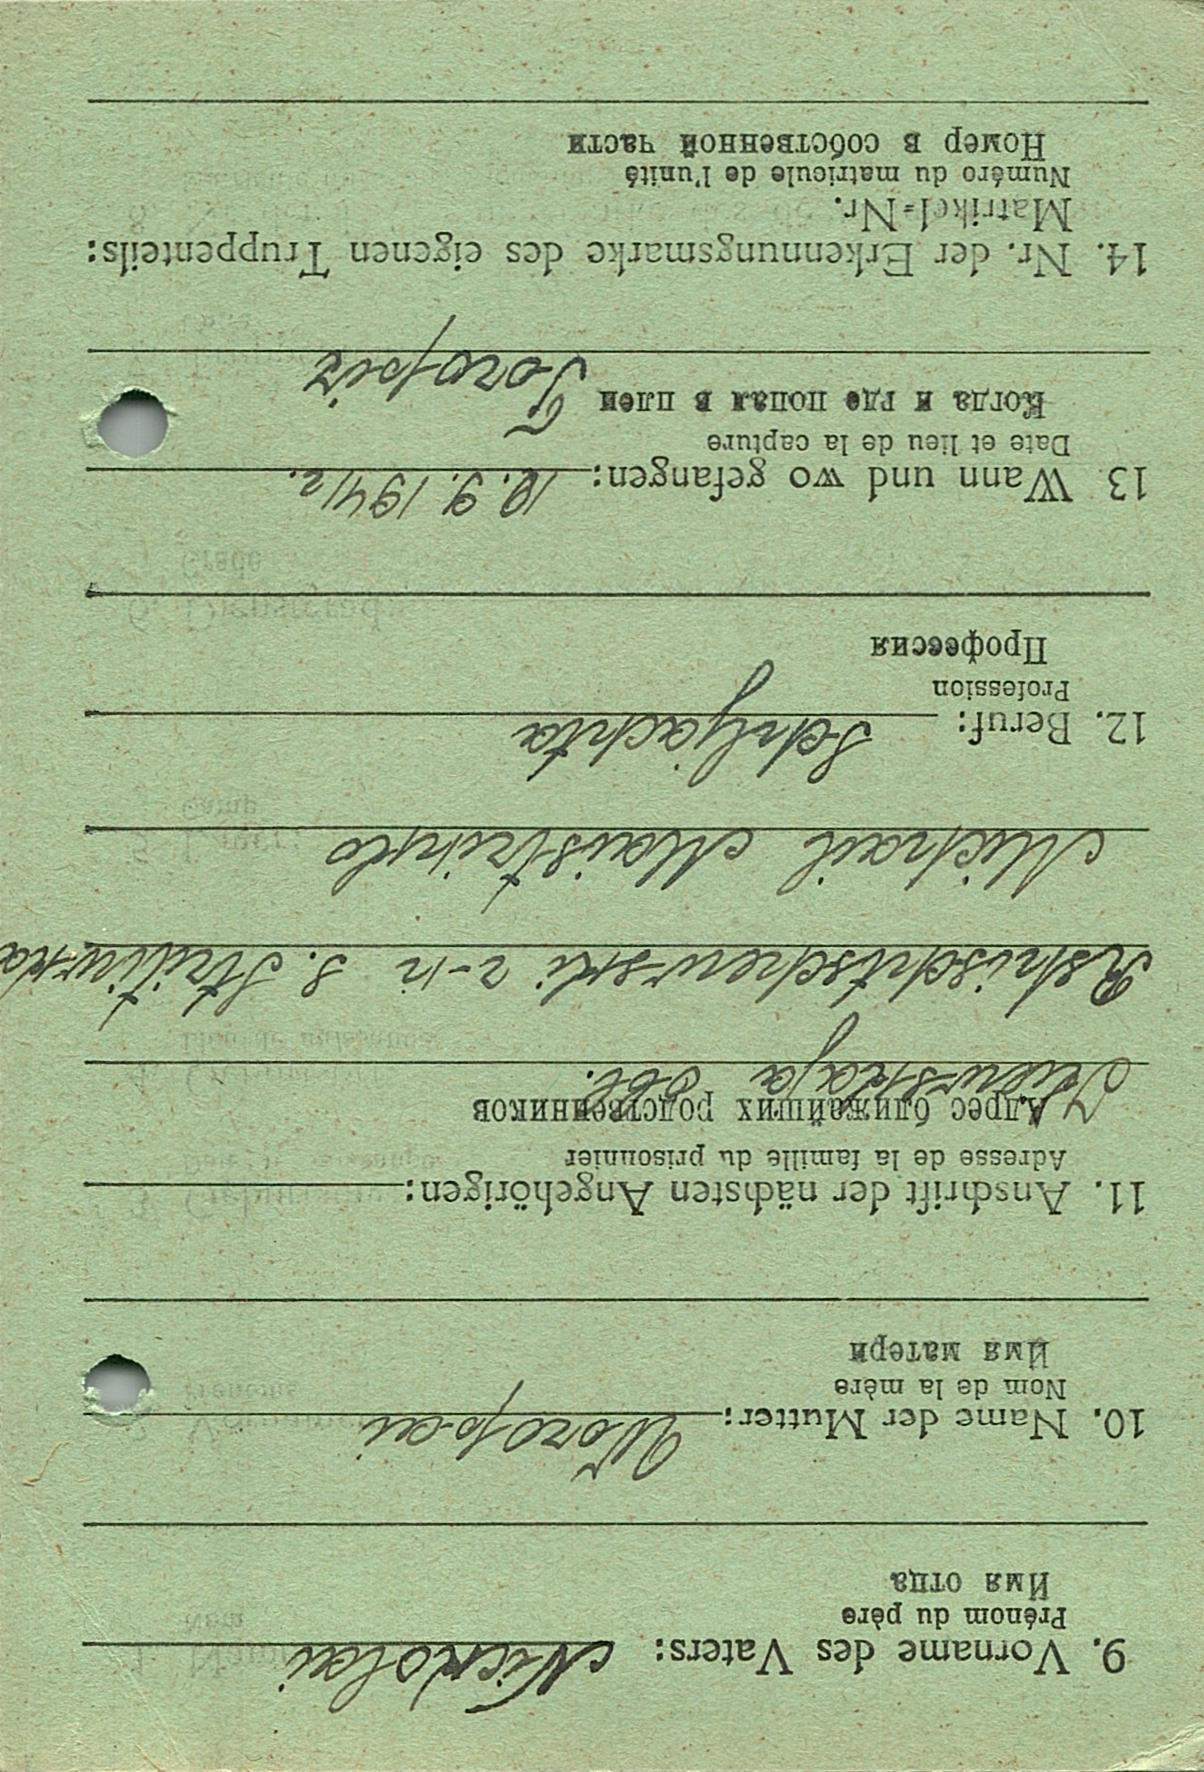 9. Vorname des Vaters: Nickolai
Prénom du père
Имя отца
10. Name der Mutter: Woropai
Nom de la mère
Имя матери
11. Anschrift der nächsten Angehörigen:
Adresse de la famille du prisonnier
Адрес ближайших родственников
Kiewskaja Obl.
Rshischtschewski r-n s. Stritiwka
Michail Maistrinko
12. Beruf: Schljachta
Profession
Профессия
13 Wann und wo gefangen: 12.9.1941
Date et lieu de la capture
Когда и где попал в плен
14. Nr. der Erkennungsmarke des eigenen Truppenteils:
Matrikel=Nr.
Numéro du matricule de l'unité
Номер в собственной части